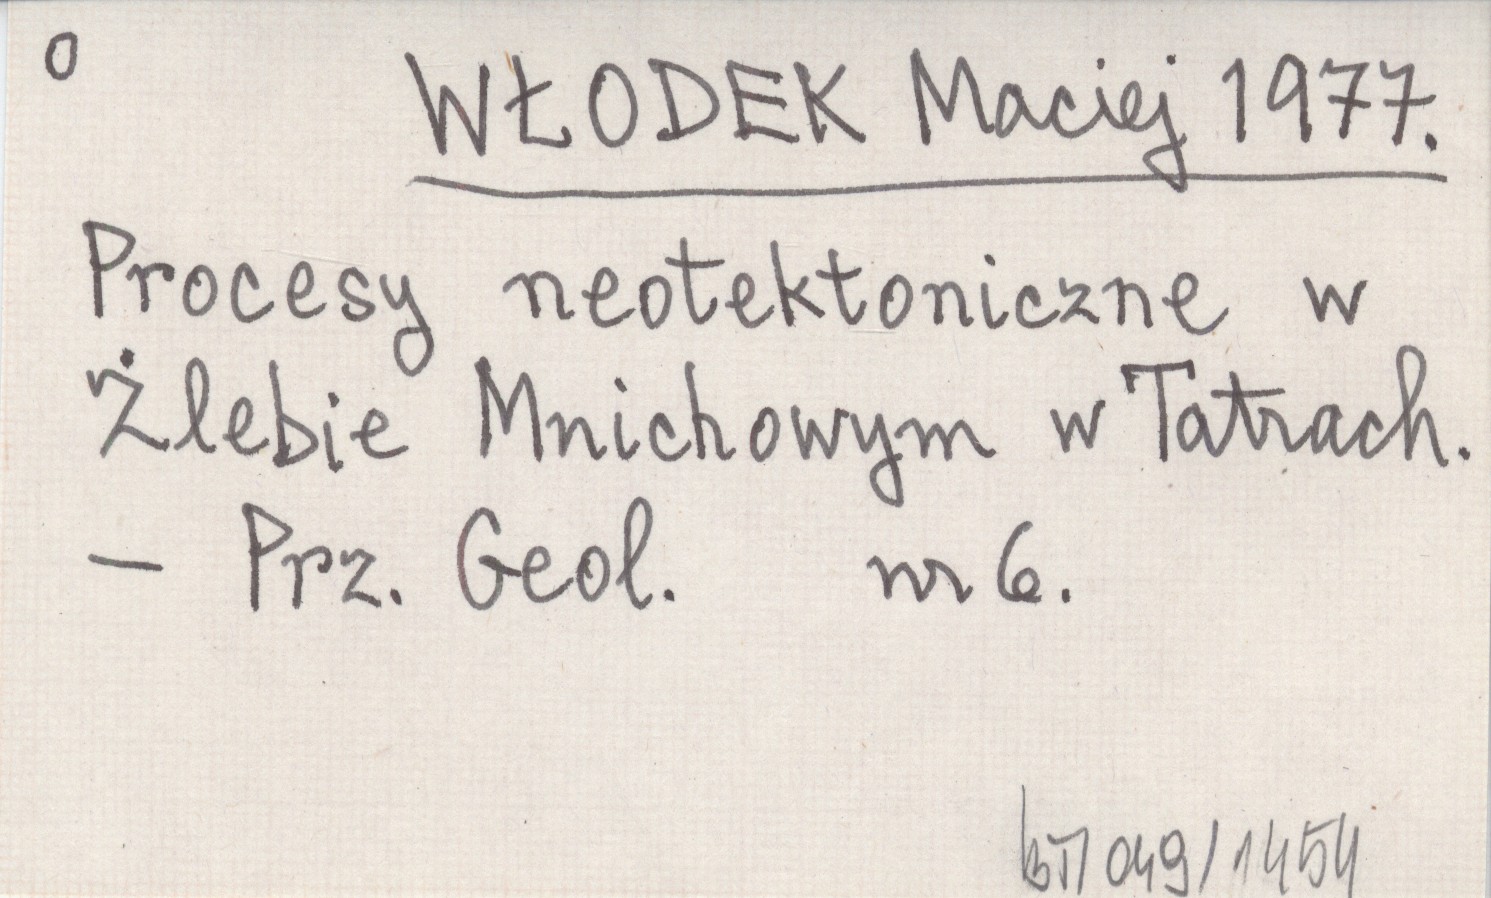 O
WŁODEK Maciej 1977.
Procesy neotektoniczne w
Żlebie Mnichowym w Tatrach.
– Prz. Geol. nr 6.
049/1454